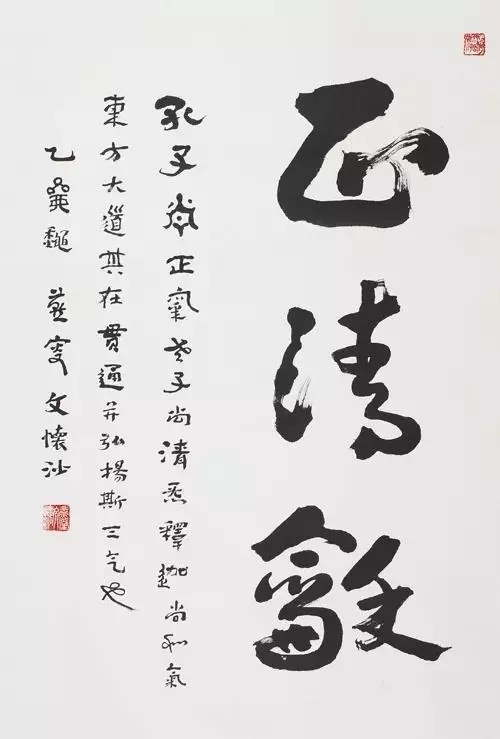 正清龢
孔子尚正氣老子尚清炁釋迦尚和氣
東方大道其在貫通并弘揚斯三气也
乙 燕叟文懷沙